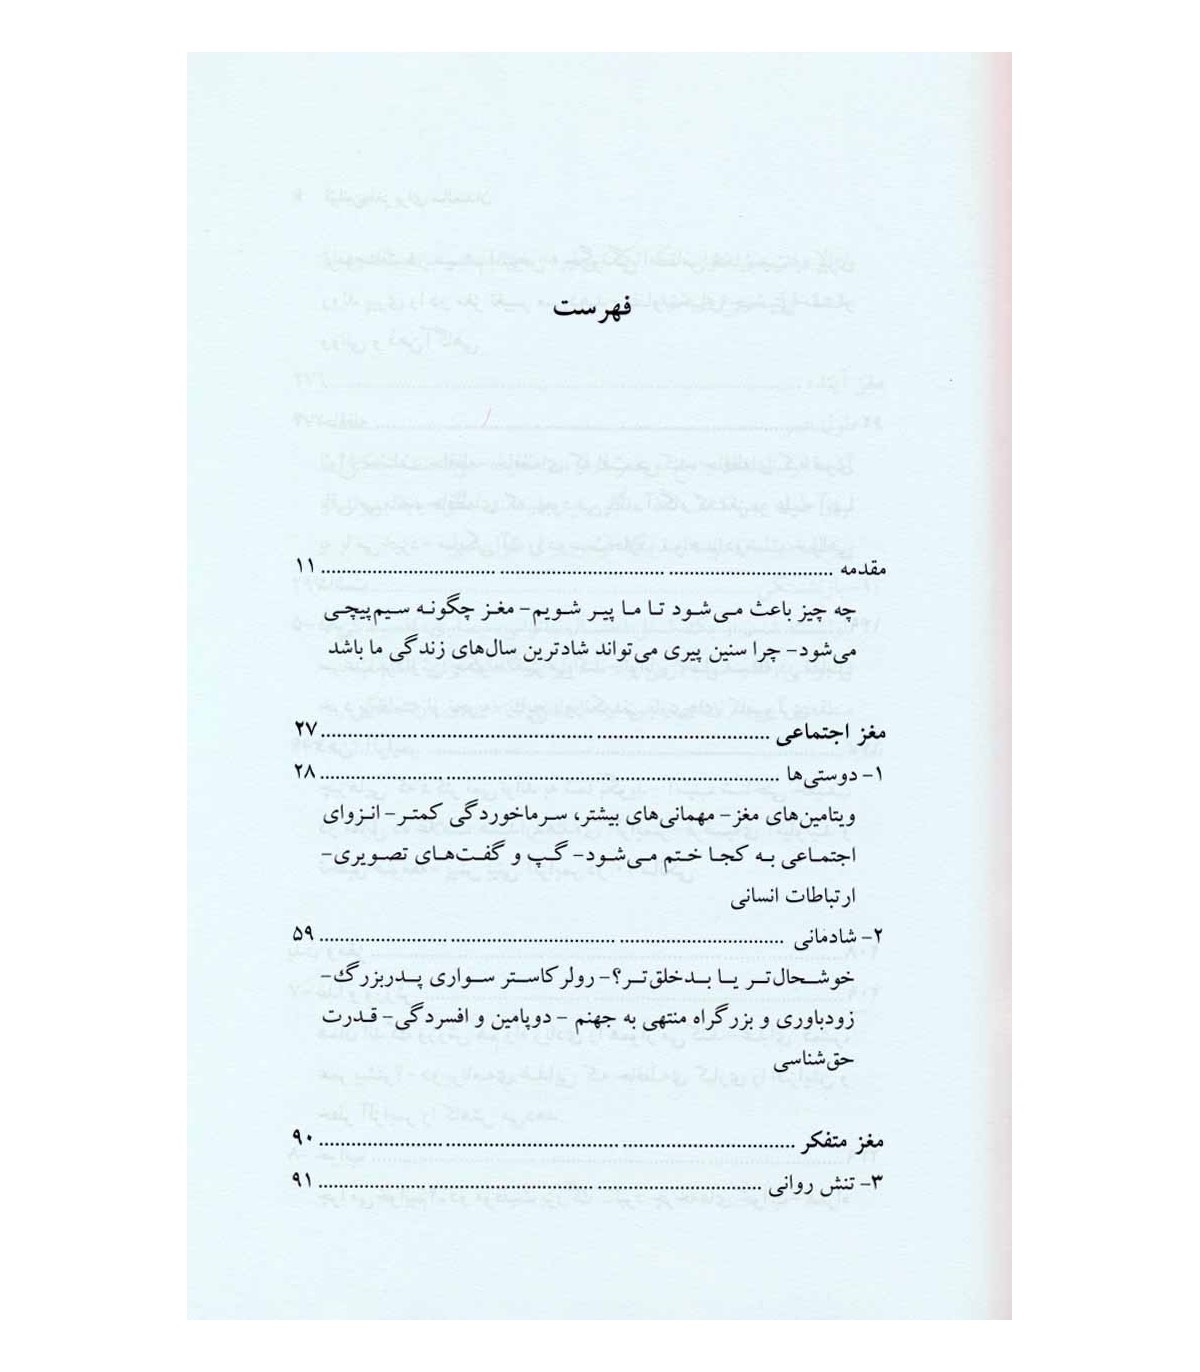 فهرست
مقدمه ................................................................................ ۱۱
چه چیز باعث می‌شود تا ما پیر شویم- مغز چگونه سیم‌پیچی
می‌شود- چرا سنین پیری می‌تواند شادترین سال‌های زندگی ما باشد
مغز اجتماعی ................................................................................ ۲۷
۱- دوستی‌ها ................................................................................ ۲۸
ویتامین‌های مغز- مهمانی‌های بیشتر، سرماخوردگی کمتر- انزوای
اجتماعی به کجا ختم می‌شود- گپ و گفت‌های تصویری-
ارتباطات انسانی
۲- شادمانی ................................................................................ ۵۹
خوشحال‌تر یا بدخلق‌تر؟- رولرکاستر سواری پدربزرگ-
زودباوری و بزرگراه منتهی به جهنم - دوپامین و افسردگی- قدرت
حق‌شناسی
مغز متفکر ................................................................................ ۹۰
۳- تنش روانی ................................................................................ ۹۱